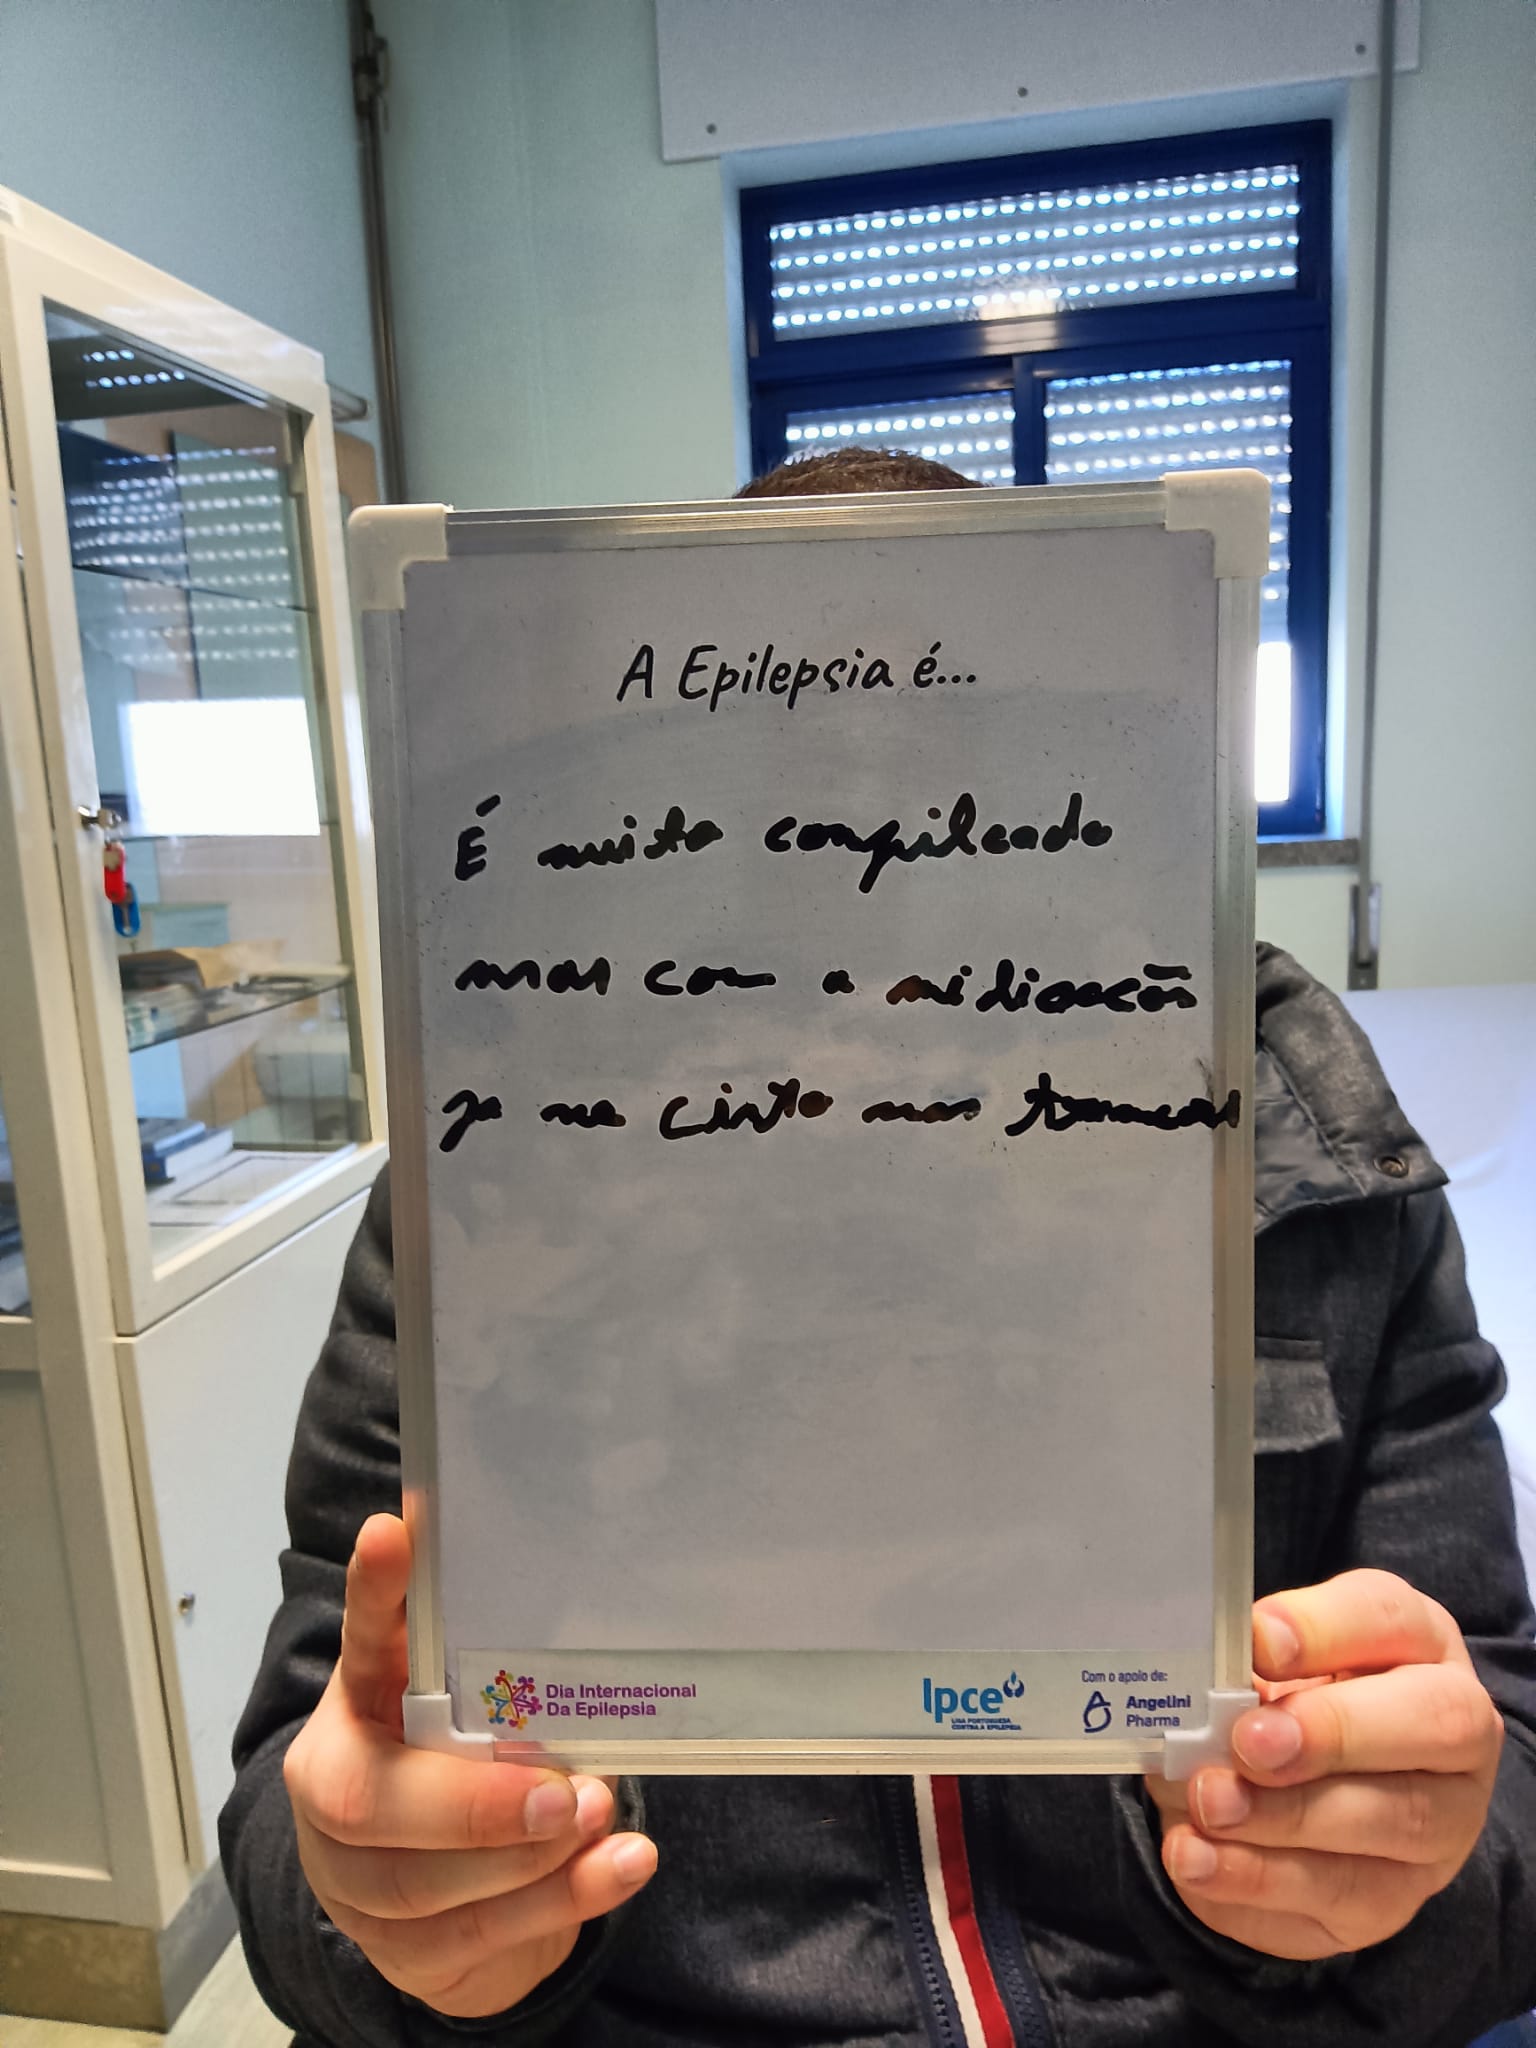 A Epilepsia é...
É muito compilcado
mas com a midicação
ja me cinto mas
Dia Internacional
Da Epilepsia
lpce
LIGA PORTUGUESA
CONTRA A EPILEPSIA
Com o apoio de:
Angelini
Pharma